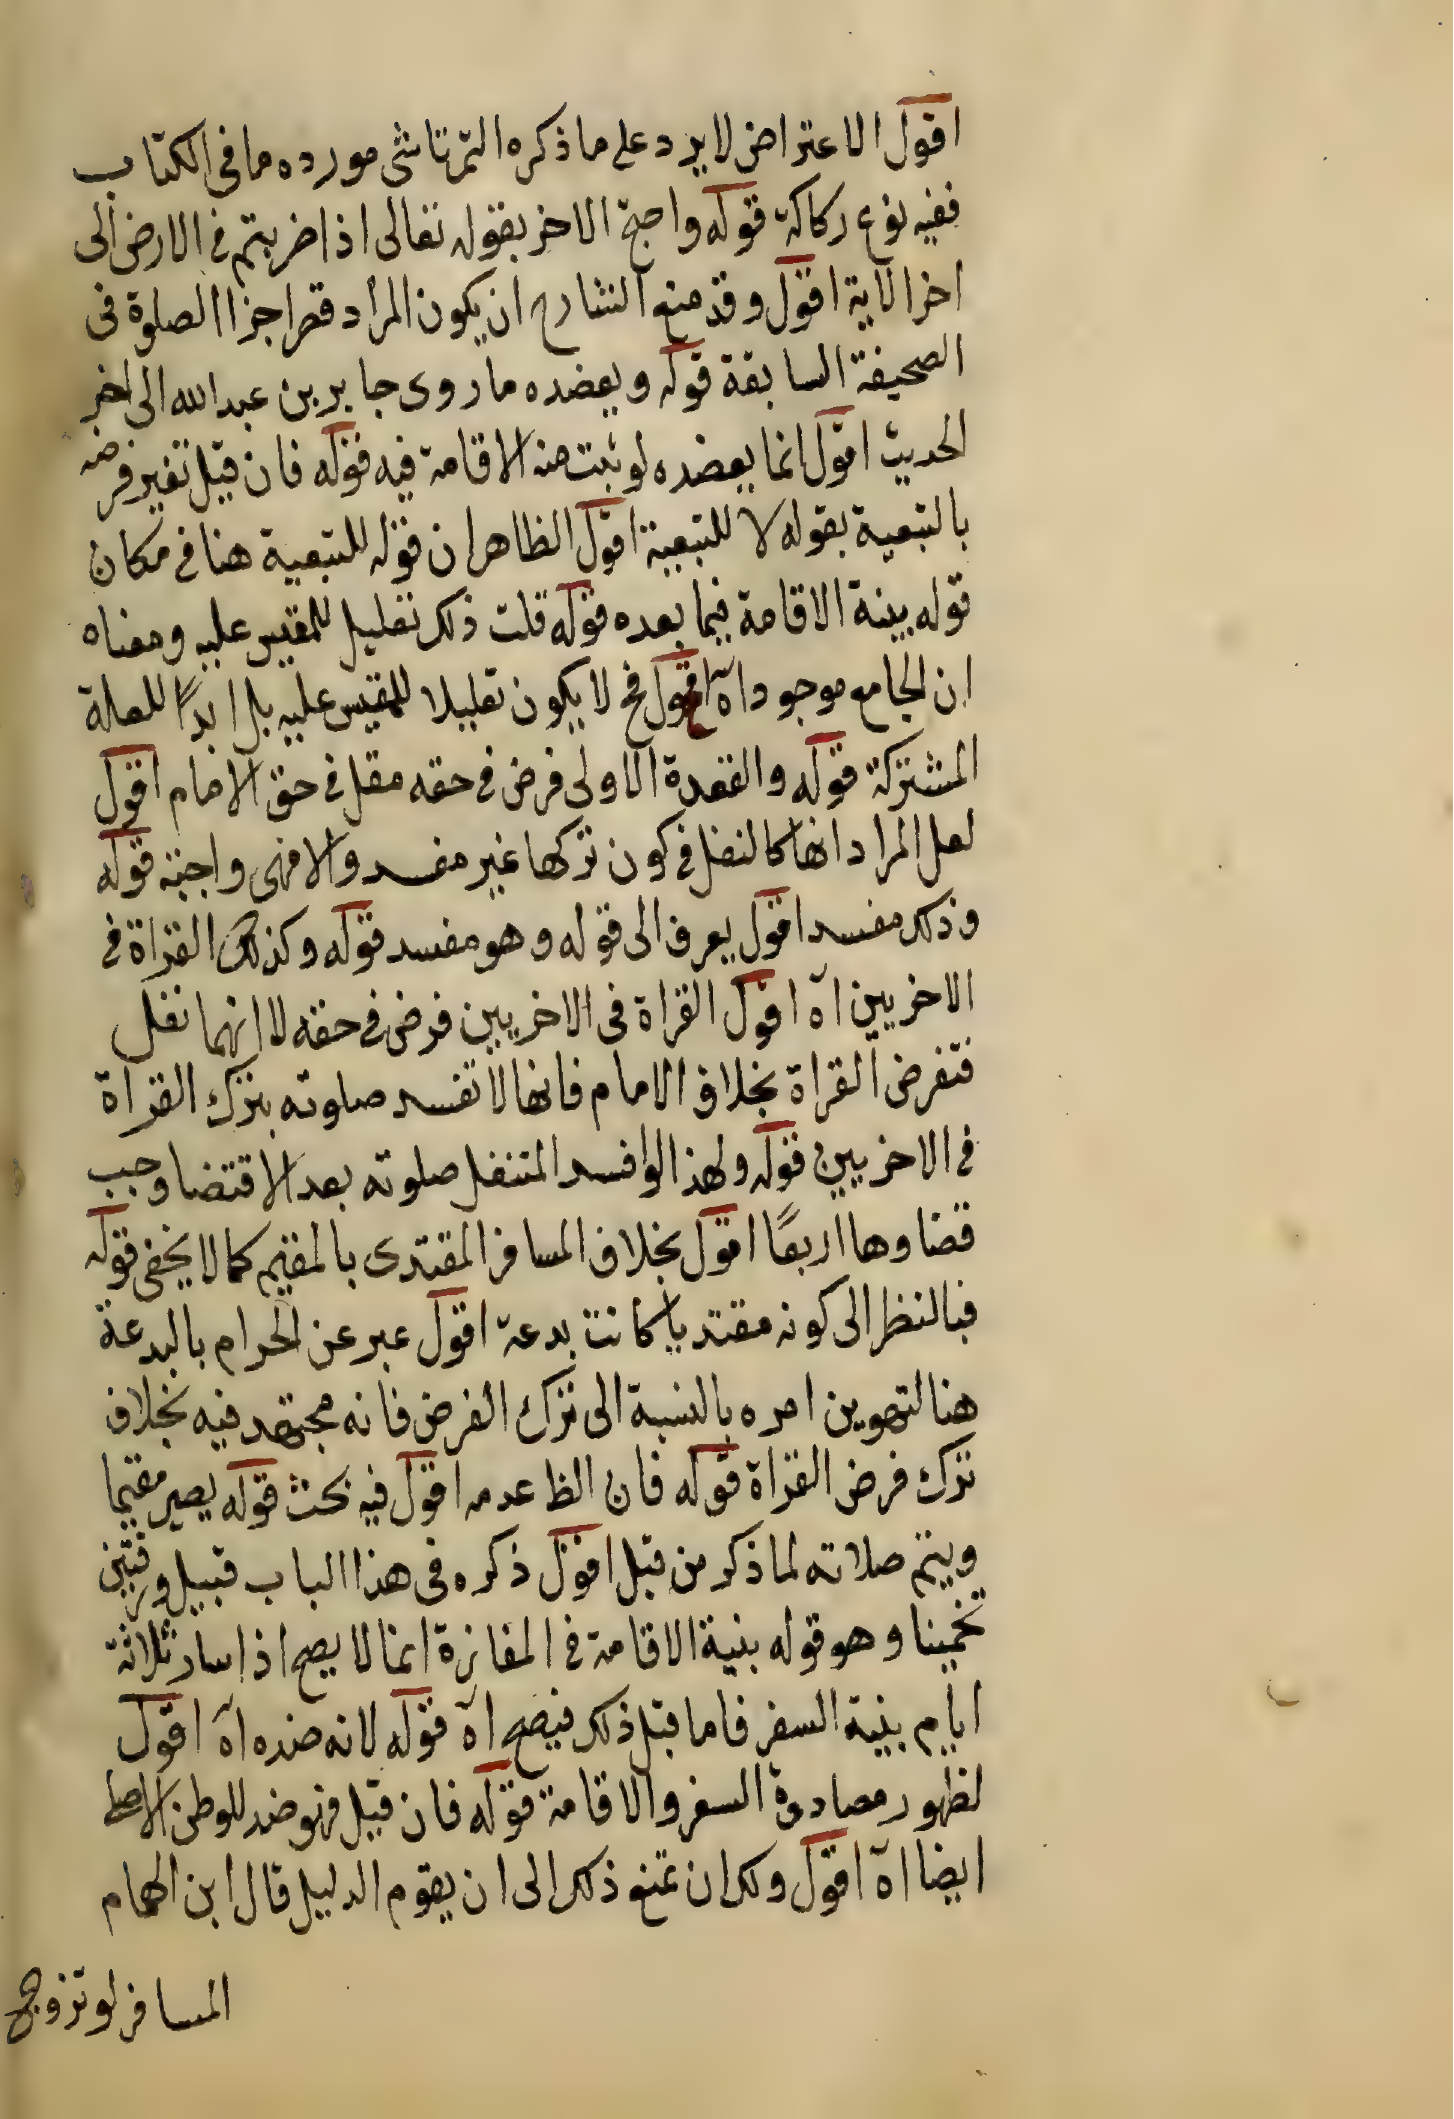 اقول الاعتراض لا يرد على ما ذكره التمرتاشى مورده ما فى الكتاب
ففيه نوع ركاكة قوله واحتج الاخر بقوله تعالى اذا ضربتم فى الارض الى
اخر الآية اقول وقد منع الشارح ان يكون المراد قصر اجزا الصلوة فى
الصحيفة السابقة قوله ويعضده ما روى جابر بن عبدالله الى اخر
الحديث اقول انما يعضده لو ثبت منه الاقامة فيه قوله فان قيل تغير فرضه
بالتبعية بقوله لا للتبعية اقول الظاهر ان قوله للتبعية هنا فى مكان
قوله بينة الاقامة فيما بعده قوله قلت ذلك تعليل للمقيس عليه ومعناه
ان الجامع موجود اه اقول فح لا يكون تعليلا للمقيس عليه بل ابدًا للعلة
المشتركة قوله والقعدة الاولى فرض فى حقه مقل فى حق الامام اقول
لعل المراد انها كالنفل فى كون تركها غير مفسد والا فهى واجبة قوله
وذلك مفسد اقول يعرف الى قوله وهو مفسد قوله وكذلك القراة فى
الاخريين اه اقول القراة فى الاخريين فرض فى حقه لا انهما نفل
فتفرض القراة بخلاف الامام فانها لا تفسد صلوته بترك القراة
فى الاخريين قوله ولهذا لو افسد المتنفل صلوته بعد الاقتضا وجب
قضاوها اربعًا اقول بخلاف المسافر المقتدى بالمقيم كما لا يخفى قوله
فبالنظر الى كونه مقتديا كانت بدعة اقول عبر عن الحرام بالبدعة
هنا لتهوين امره بالنسبة الى ترك الفرض فانه مجتهد فيه بخلاف
ترك فرض القراة قوله فان الظ عدمه اقول فيه بحث قوله يصير مقيما
ويتم صلاته لما ذكر من قبل اقول ذكره فى هذا الباب قبيل ورقتين
تخمينا وهو قوله بنية الاقامة فى المفازة انما لا يصح اذا سار ثلاثة
ايام بنية السفر فاما قبل ذلك فيصح اه قوله لانه ضده اه اقول
لظهور مصادة السفر والاقامة قوله فان قيل فهو ضد للوطن الاصلى
ايضا اه اقول ولك ان تمنع ذلك الى ان يقوم الدليل قال ابن الهمام
المسافر لو تزوج